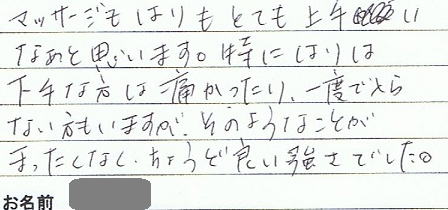 マッサージも はりも とても 上手 い
なあと思います。特に はりは
下手な方は痛かったり、一度でとら
ない方もいますが、そのようなことが
まったくなく、ちょうど良い強さでした。
お名前